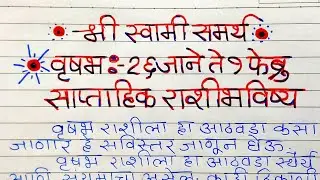 श्री स्वामी समर्थ
वृषभ :- २६ जाने ते १ फेब्रु
साप्ताहिक राशीभविष्य
वृषभ राशीला हा आठवडा कसा
जाणार हे सविस्तर जाणून घेऊ.
वृषभ राशीला हा आठवडा स्थैर्य
आणि संयमाचा असेल. काही ठिकाणी